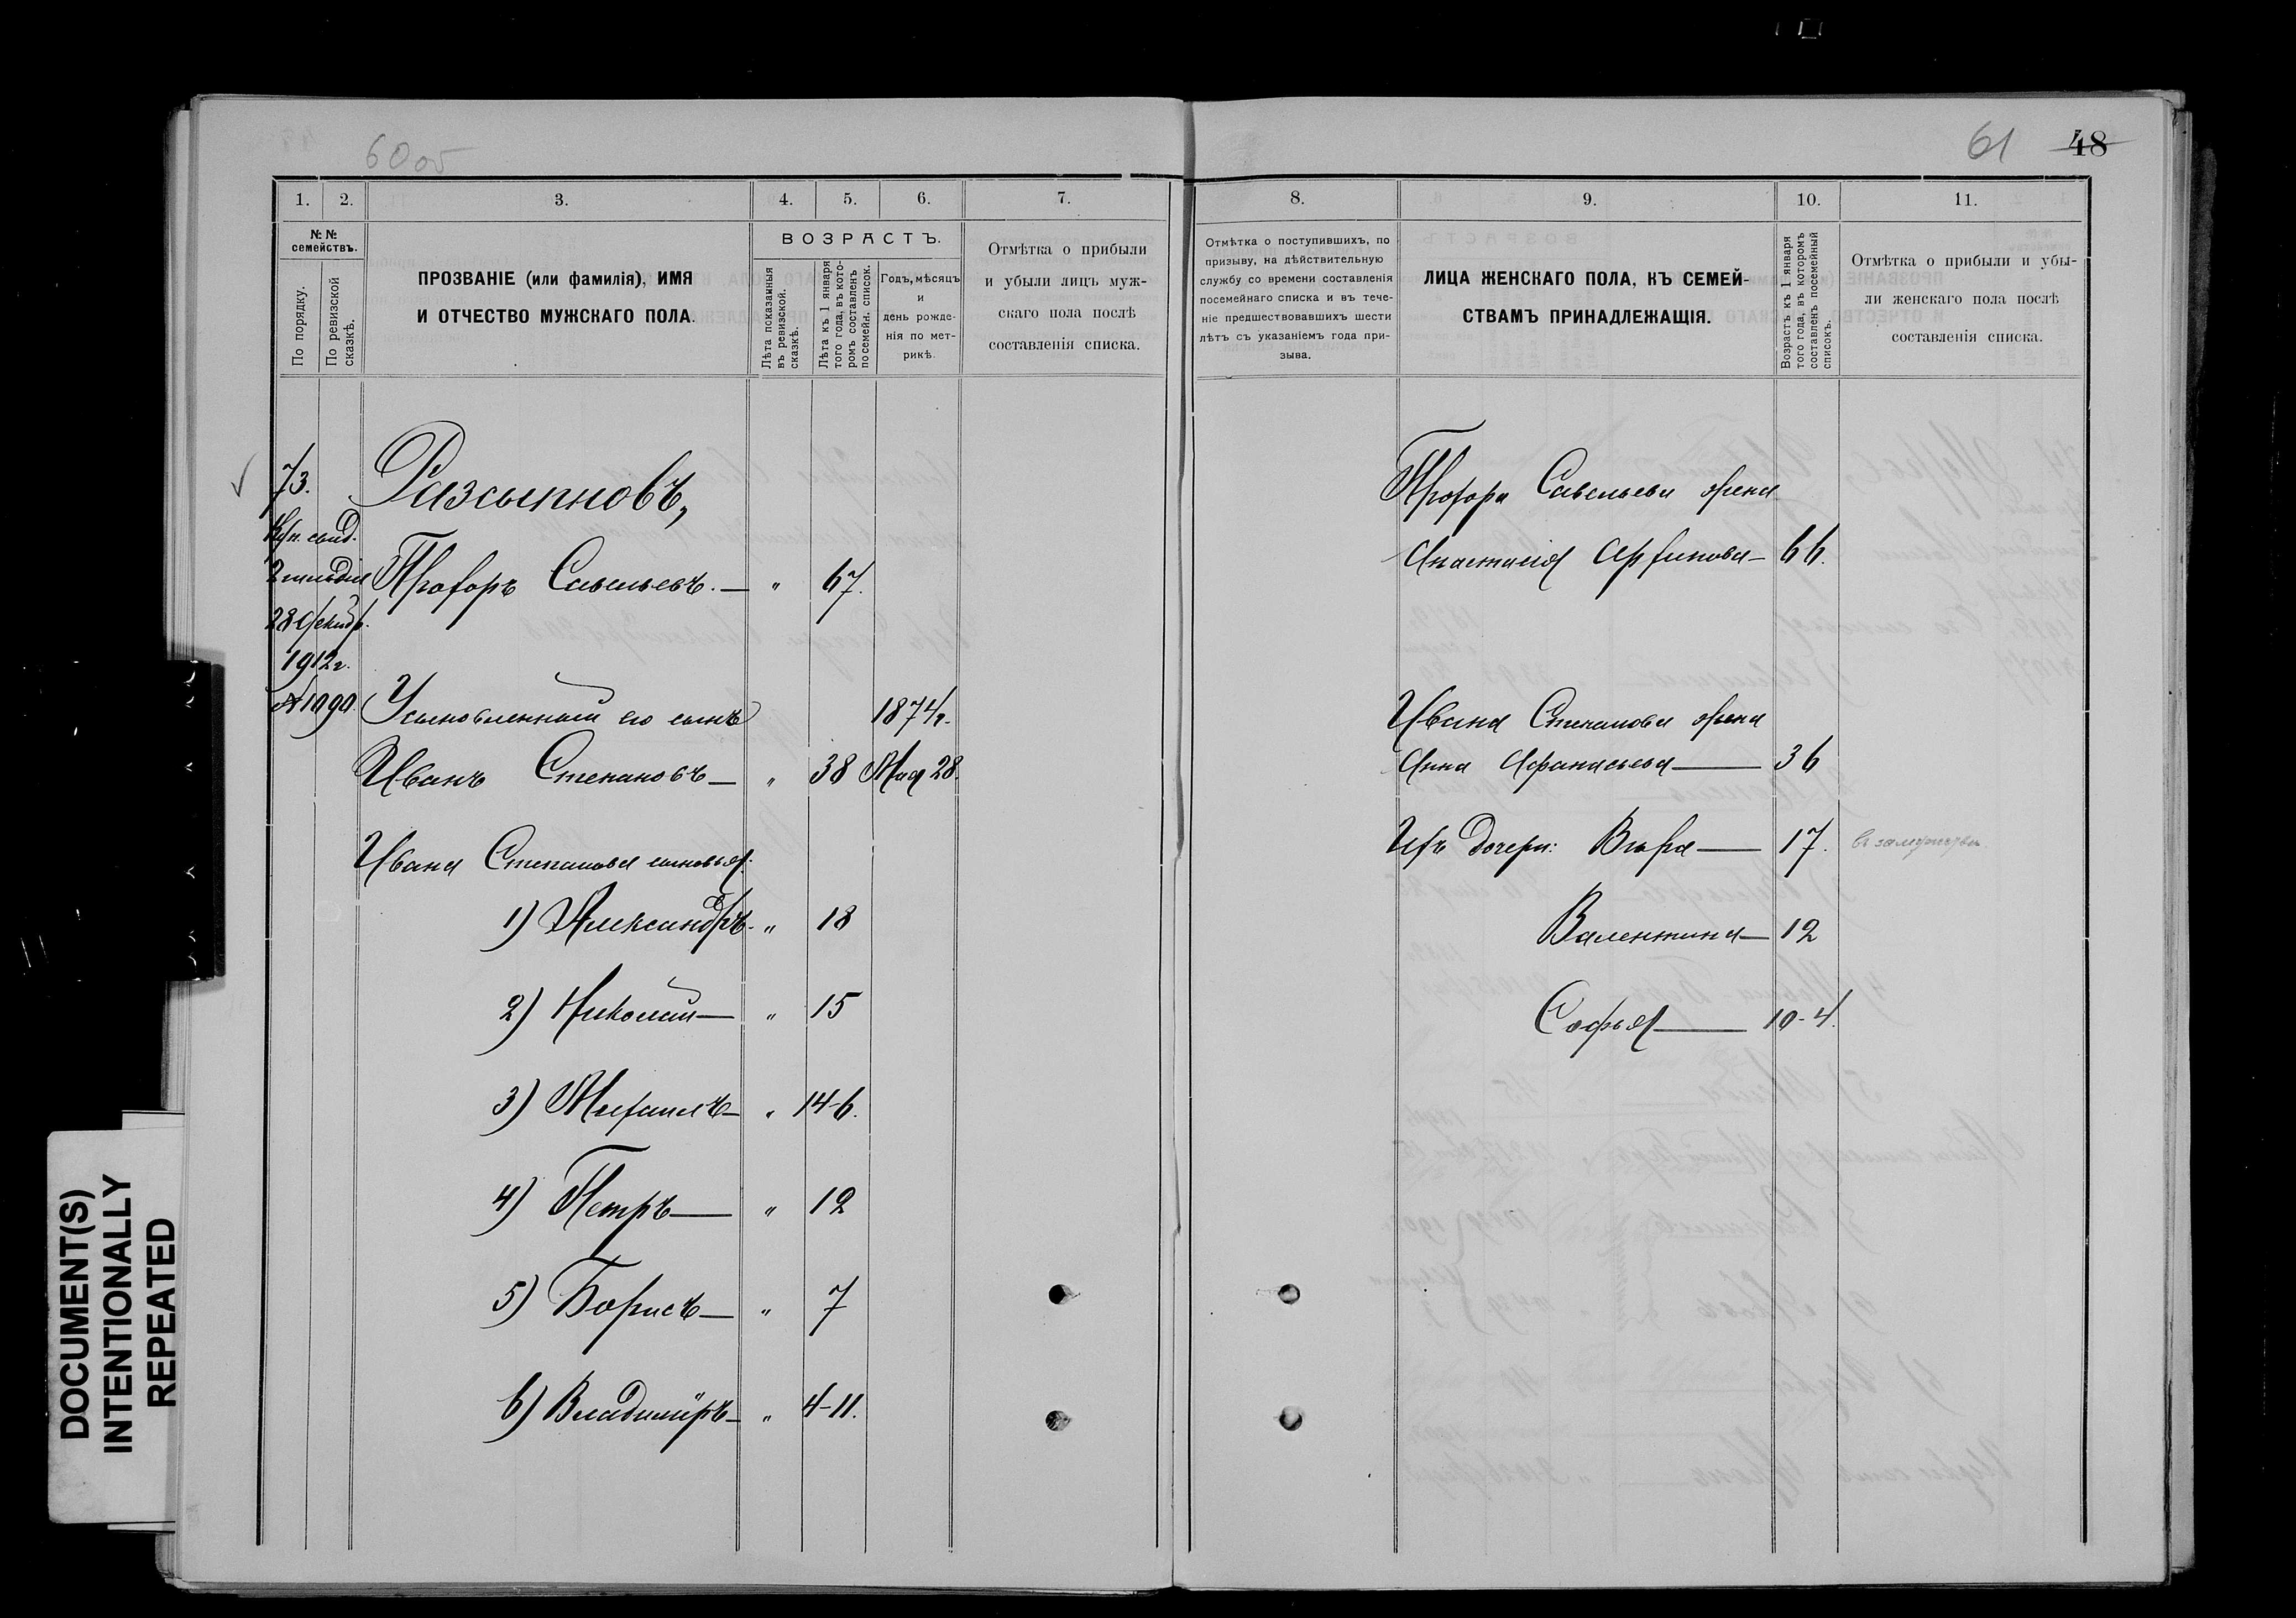 60 об
61 48
1. 2. 3. 4. 5. 6. 7.
№ № семействъ.
По порядку.
По ревизской сказкѣ.
ПРОЗВАНІЕ (или фамилія), ИМЯ
И ОТЧЕСТВО МУЖСКАГО ПОЛА.
ВОЗРАСТЪ.
Лѣта показанныя въ ревизской сказкѣ.
Лѣта къ 1 января того года, въ которомъ составленъ посемейн. список.
Годъ, мѣсяцъ
и
день рожде-
нія по мет-
рикѣ.
Отмѣтка о прибыли
и убыли лицъ муж-
скаго пола послѣ
составленія списка.
73.
Разсыпновъ,
Куп. свид.
2 гильдіи
Прохоръ Савельевъ. — " 67.
28 Декабр.
1912 г.
№ 1090.
Усыновленный его сынъ 1874 г.
Иванъ Степановъ — " 38 Мая 28.
Ивана Степанова сыновья:
1) Александръ - " 18
2) Николай — " 15
3) Михаилъ — " 14-6.
4) Петръ — " 12
5) Борисъ — " 7
6) Владиміръ — " 4-11.
8. 9. 10. 11.
Отмѣтка о поступившихъ, по
призыву, на дѣйствительную
службу со времени составленія
посемейнаго списка и въ тече-
ніе предшествовавшихъ шести
лѣтъ съ указаніемъ года при-
зыва.
ЛИЦА ЖЕНСКАГО ПОЛА, КЪ СЕМЕЙ-
СТВАМЪ ПРИНАДЛЕЖАЩІЯ.
Возрастъ къ 1 января того года, въ которомъ составленъ посемейный списокъ.
Отмѣтка о прибыли и убы-
ли женскаго пола послѣ
составленія списка.
Прохора Савельева жена
Анастасія — 66.
Ивана Степанова жена
Анна Афанасьева — 36
Ихъ дочери: Вѣра — 17. въ замужествѣ.
Валентина — 12
Софья — 10-4.
DOCUMENT(S)
INTENTIONALLY
REPEATED